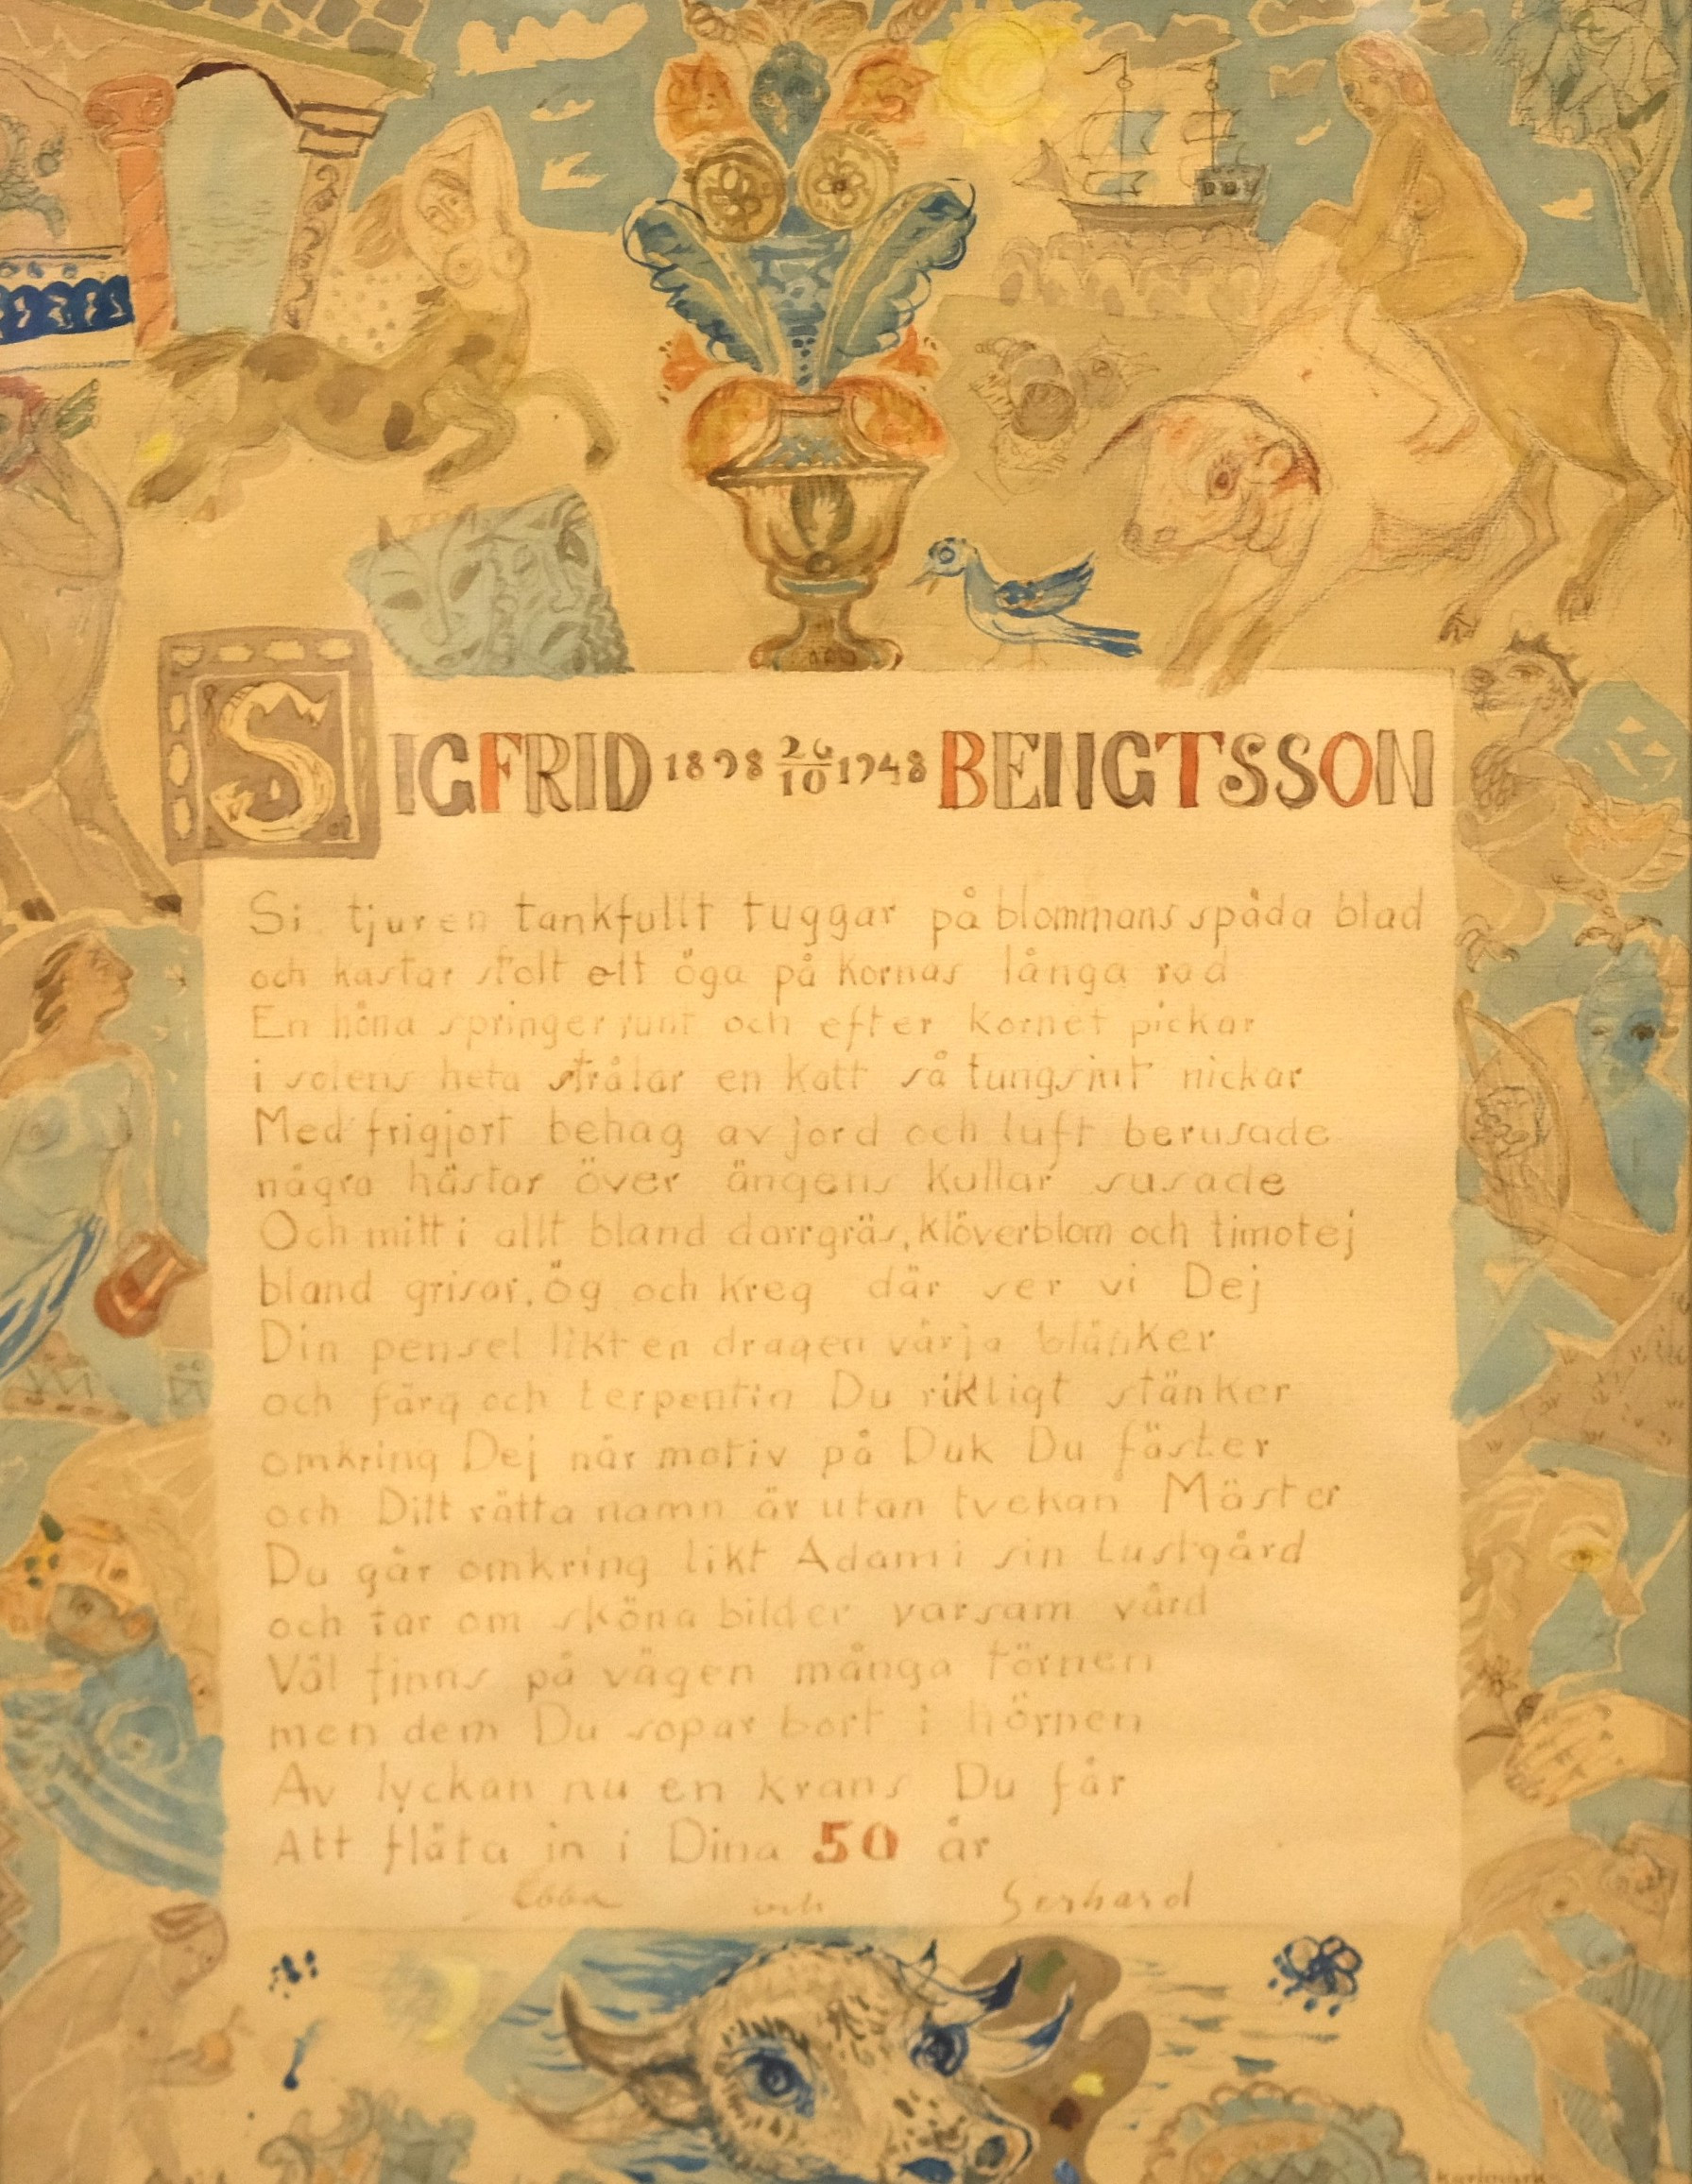 SIGFRID 1898 26/10 1948 BENGTSSON
Si tjuren tankfullt tuggar på blommans späda blad
och kastar stolt ett öga på kornas långa rad
En höna springer runt och efter kornet pickar
i solens heta strålar en katt så tungsint nickar
Med frigjort behag av jord och luft berusade
några hästar över ängens kullar susade
Och mitt i allt bland darrgräs, klöverblom och timotej
bland grisar, ög och kreg där ser vi Dej
Din pensel likt en dragen värja blänker
och färg och terpentin Du rikligt stänker
omkring Dej när motiv på Duk Du fäster
och Ditt rätta namn är utan tvekan Mäster
Du går omkring likt Adam i sin Lustgård
och tar om sköna bilder varsam vård
Väl finns på vägen många törnen
men dem Du sopar bort i hörnen
Av lyckan nu en krans Du får
Att fläta in i Dina 50 år
Ebba och Gerhard